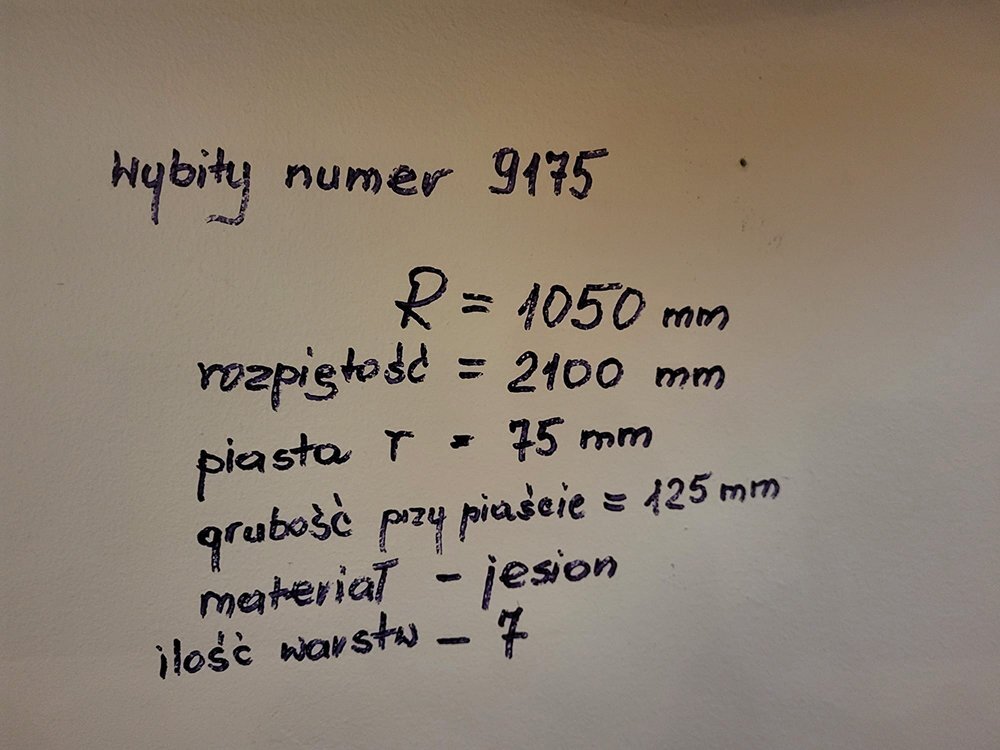 Wybity numer 9175
R = 1050 mm
rozpiętość = 2100 mm
piasta r = 75 mm
grubość przy piaście = 125 mm
materiał - jesion
ilość warstw - 7